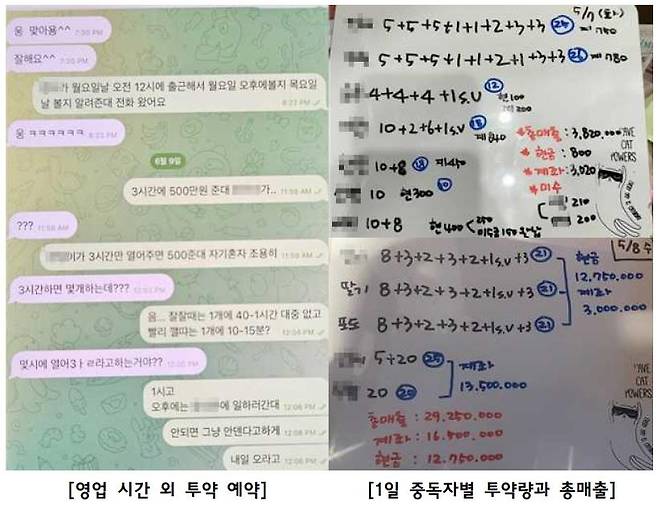 웅 맞아용^^
7:35 PM
잘해요^^
7:35 PM
가 월요일날 오전 12시에 출근해서 월요일 오후에볼지 목요일
날 볼지 알려준대 전화 왔어요
8:23 PM
웅 ㅋㅋㅋㅋㅋㅋ
8:23 PM
6월 9일
3시간에 500만원 준대
가..
11:58 AM
???
11:58 AM
이가 3시간만 열어주면 500준대 자기혼자 조용히
11:59 AM
3시간하면 몇개하는데???
12:03 PM
음... 잘잘때는 1개에 40-1시간 대중 없고
빨리 깰때는 1개에 10-15분?
12:04 PM
몇시에 열어3ㅏㄹ라고하는거야??
12:05 PM
1시고
오후에는
에 일하러간대
12:06 PM
안되면 그냥 안덴다고하게
12:06 PM
내일 오라고
12:06 PM
5/7 (화)
5+5+5+1+1+2+3+3 25 계 750
5+5+5+1+1+2+1+3+3 26 계 780
4+4+4+1s.v 12 현100
200
10+2+6+1s.v 18 계840
10+8 18 계450
10 현300 10
10+8 현400
250
미수금150 잔납
*총매출 : 3,820,000
*현금 : 800
*계좌 : 3,020
*미수
210
200
AVE
CAT
POWERS
5/8 수
8+3+2+3+2+1s.v+3 21
딸기 8+3+2+3+2+1s.v+3 21
포도 8+3+2+3+2+1s.v+3 21
현금
12.750.000
계좌
3.000.000
5+20 25
20 20
계좌
13.500.000
총매출 : 29.250.000
계좌 : 16.500.000
현금 : 12.750.000
AVE
CAT
POWERS
[영업 시간 외 투약 예약]
[1일 중독자별 투약량과 총매출]